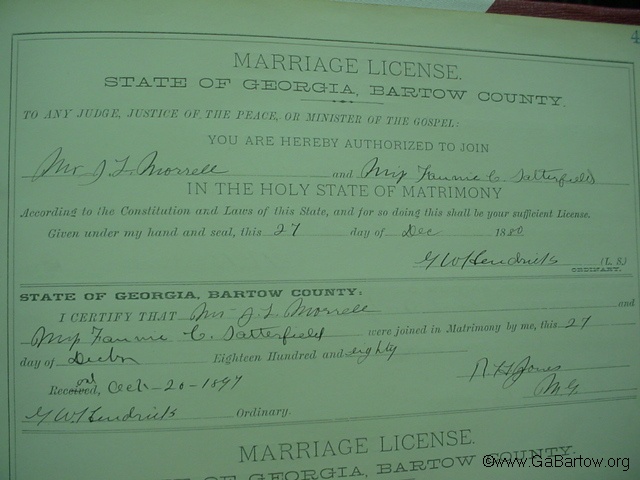 4
MARRIAGE LICENSE.
STATE OF GEORGIA, BARTOW COUNTY.
TO ANY JUDGE, JUSTICE OF THE PEACE, OR MINISTER OF THE GOSPEL:
YOU ARE HEREBY AUTHORIZED TO JOIN
Mr J L Morrell and Miss Fannie C. Satterfield
IN THE HOLY STATE OF MATRIMONY
According to the Constitution and Laws of this State, and for so doing this shall be your sufficient License.
Given under my hand and seal, this 27 day of Dec 1880
G W Hendricks (L. S.)
ORDINARY.
STATE OF GEORGIA, BARTOW COUNTY:
I CERTIFY THAT Mr J L Morrell and
Miss Fannie C. Satterfield were joined in Matrimony by me, this 27
day of Decbr Eighteen Hundred and eighty
R H Jones
M.G.
Received, Oct- 20-1897
G W Hendricks Ordinary.
MARRIAGE LICENSE.
STATE OF GEORGIA, BARTOW COUNTY.
©www.GaBartow.org